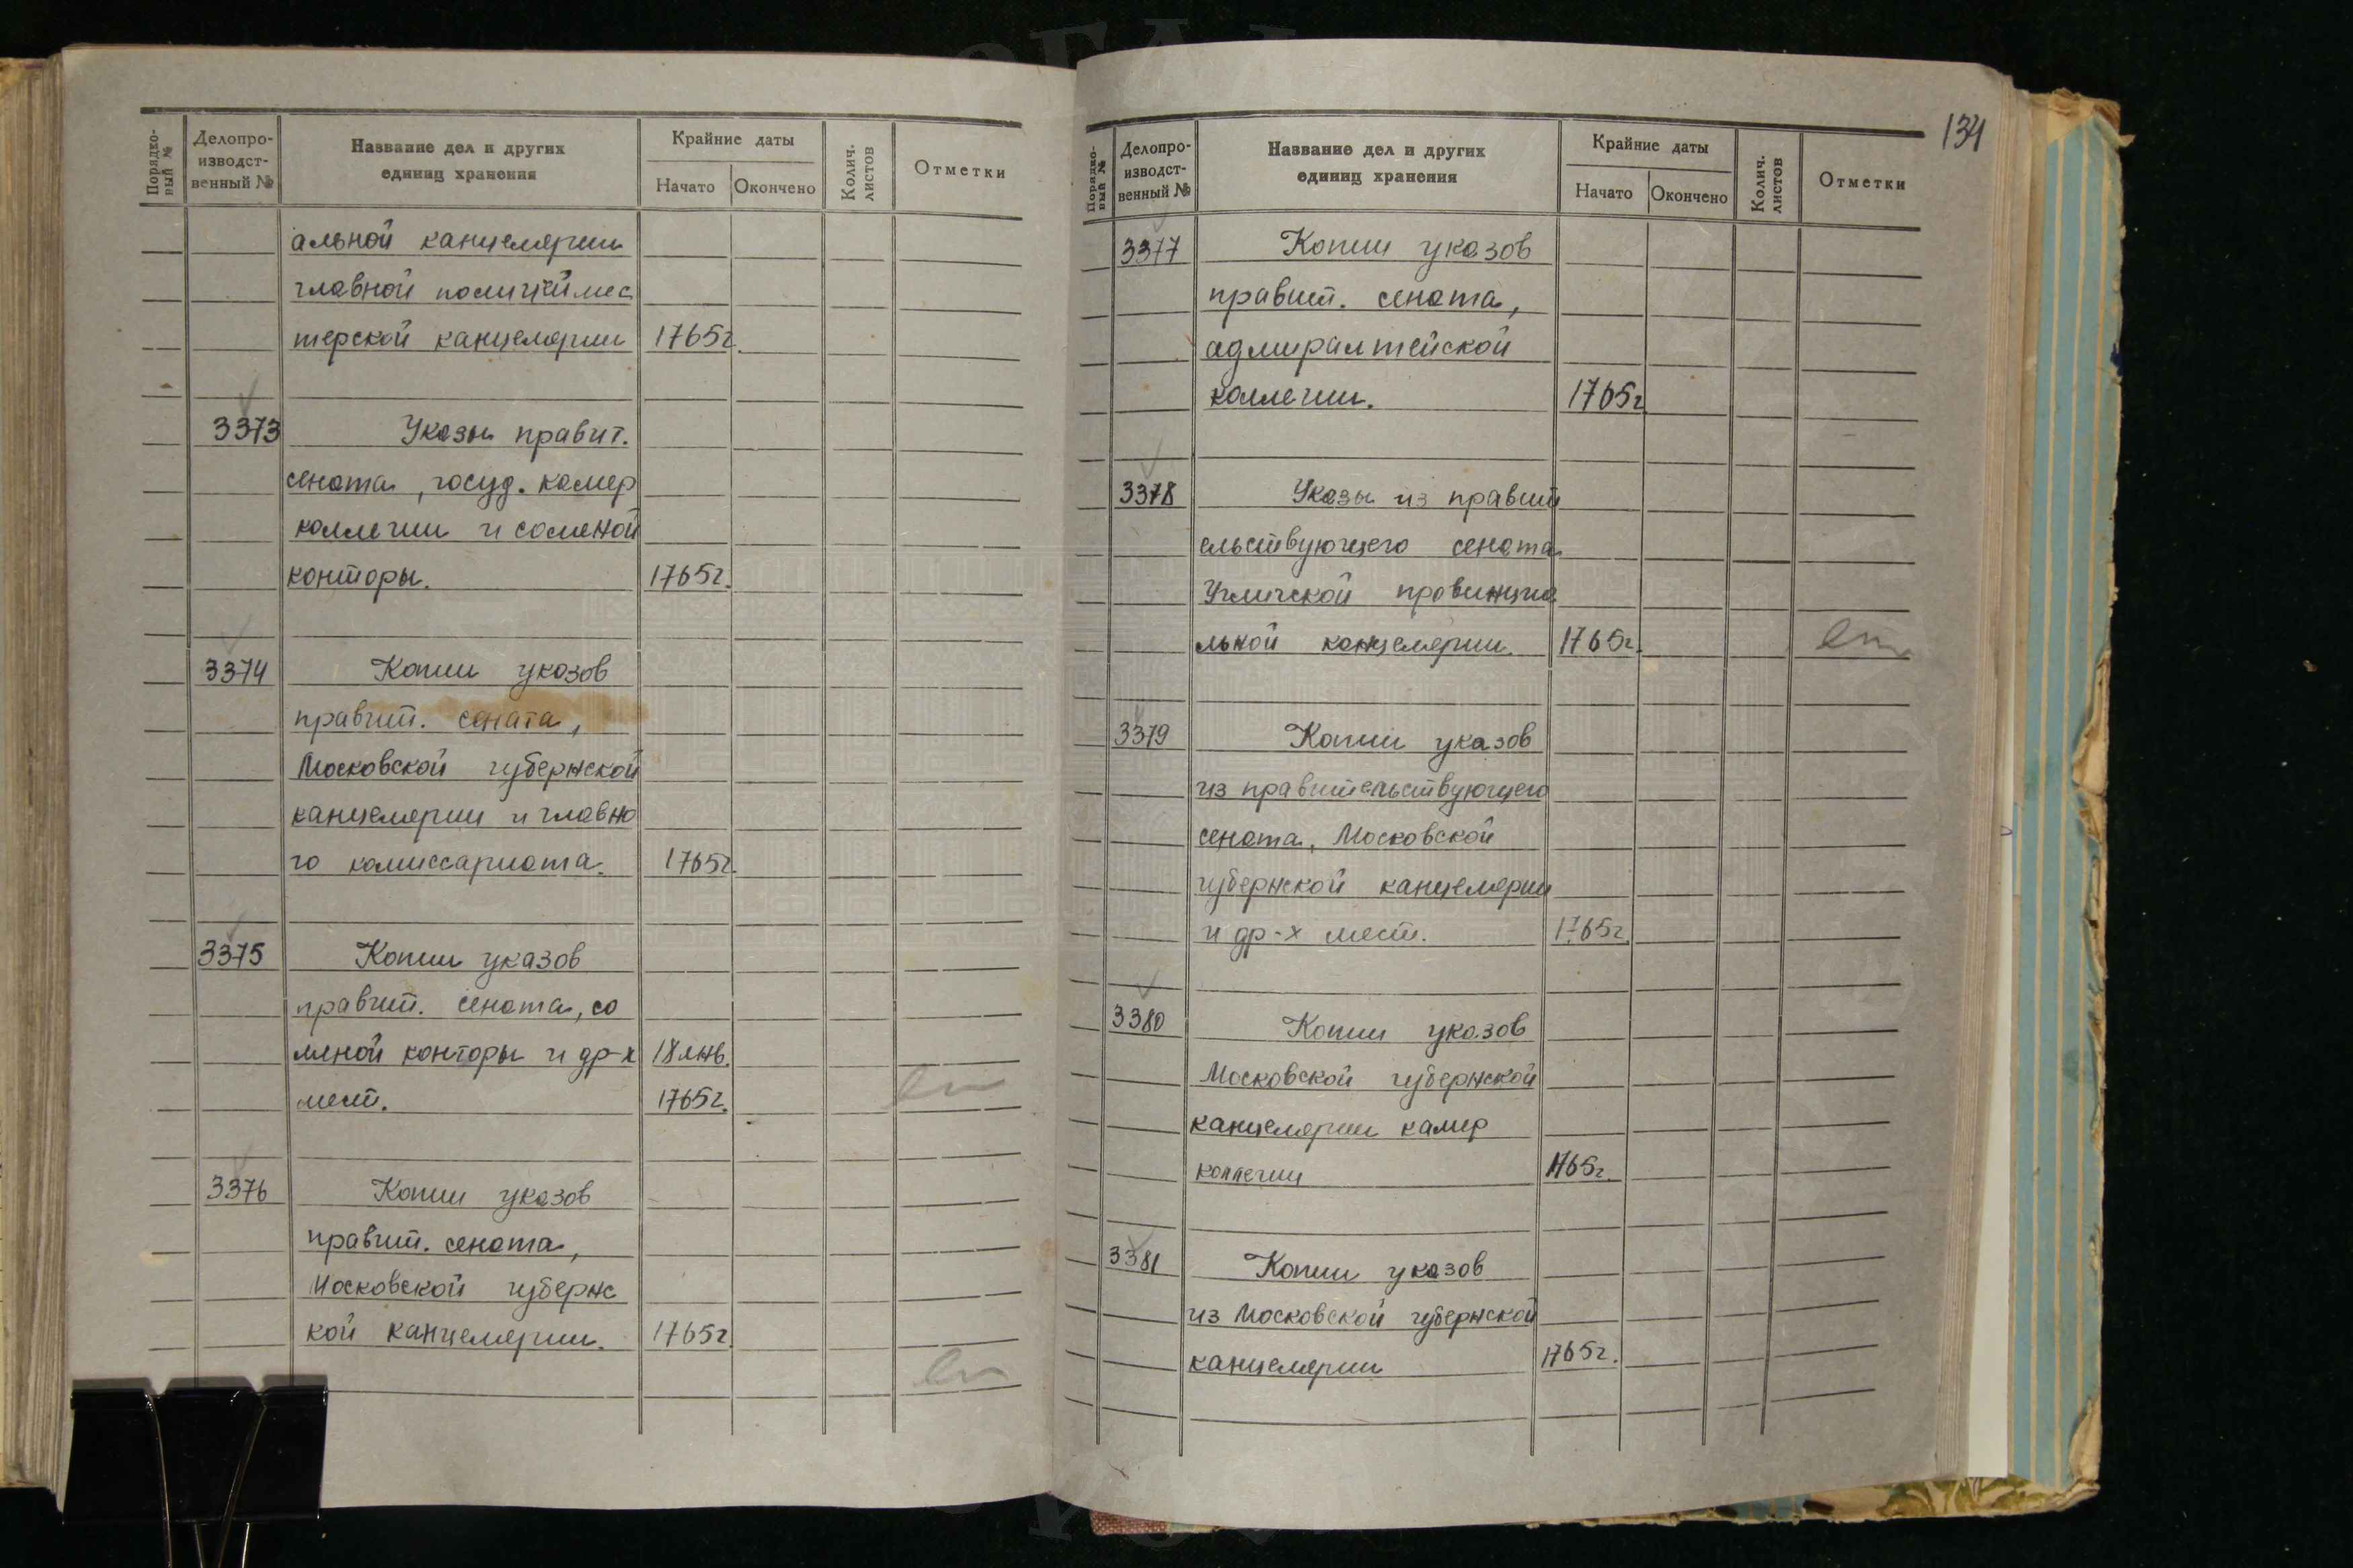 Порядко-
вый №
Делопро-
изводст-
венный №
Название дел и других
единиц хранения
Крайние даты
Начато
Окончено
Колич.
листов
Отметки
альной канцелярии
главной полицеймес
терской канцелярии 1765г.
3373 Указы правит.
сената, госуд. камер
коллегии и соляной
конторы. 1765г.
3374 Копии указов
правит. сената,
Московской губернской
канцелярии и главно
го комиссариата. 1765г.
3375 Копии указов
правит. сената, со
ляной конторы и др-х 18 янв.
мест. 1765г.
3376 Копии указов
правит. сената,
Московской губернс
кой канцелярии. 1765г.
134
Порядко-
вый №
Делопро-
изводст-
венный №
Название дел и других
единиц хранения
Крайние даты
Начато
Окончено
Колич.
листов
Отметки
3377 Копии указов
правит. сената,
адмиралтейской
коллегии. 1765г
3378 Указы из правит
ельствующего сената
Угличской провинциа
льной канцелярии. 1765г.
3379 Копии указов
из правительствующего
сената, Московской
губернской канцелярии
и др-х мест. 1765г.
3380 Копии указов
Московской губернской
канцелярии камер
коллегии 1765г.
3381 Копии указов
из Московской губернской
канцелярии 1765г.